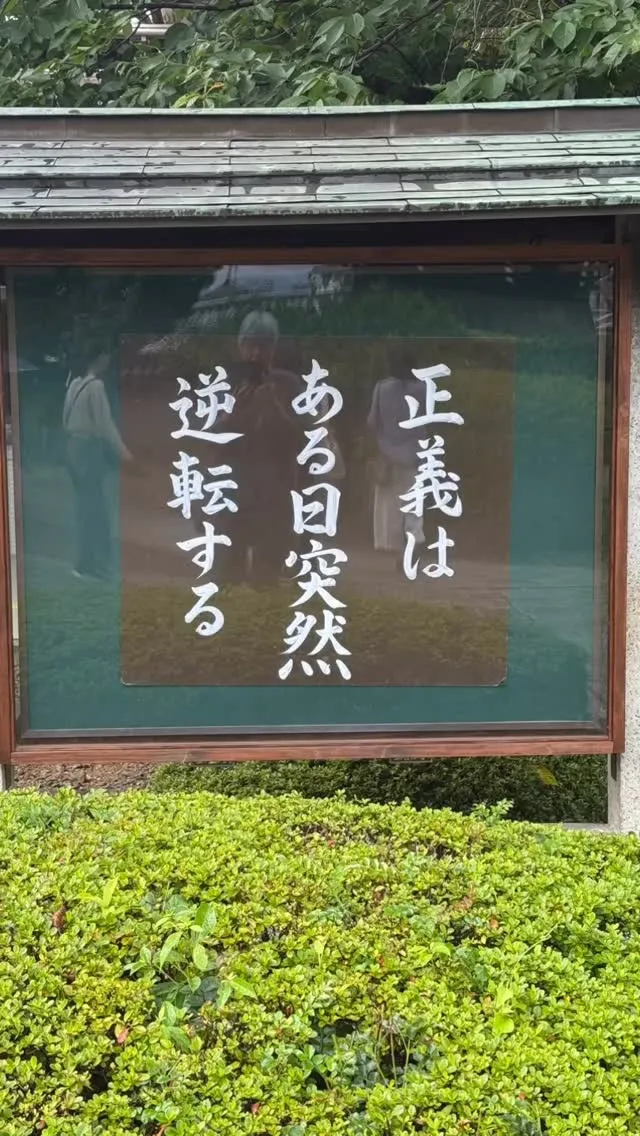 正義は
ある日突然
逆転する